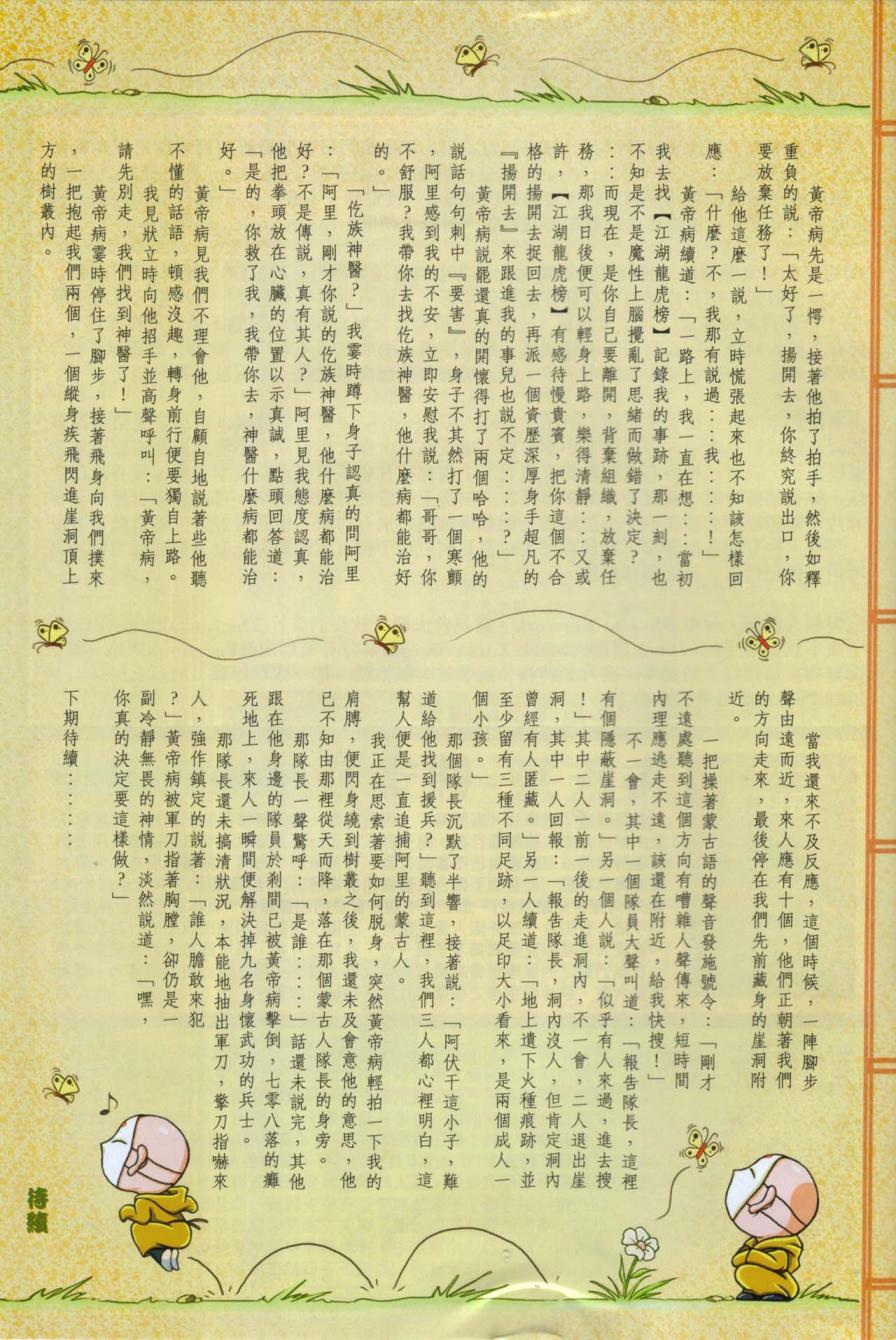 黃帝病先是一愕，接著他拍了拍手，然後如釋
重負的説：「太好了，揚開去，你終究説出口，你
要放棄任務了！」
給他這麼一説，立時慌張起來也不知該怎樣回
應：「什麼？不，我那有説過：：我：：：：！」
黃帝病續道：「一路上，我一直在想：：當初
我去找【江湖龍虎榜】記錄我的事跡，那一刻，也
不知是不是魔性上腦攪亂了思緒而做錯了決定？
：：而現在，是你自己要離開，背棄組織，放棄任
務，那我日後便可以輕身上路，樂得清靜：：又或
許，【江湖龍虎榜】有感待慢貴賓，把你這個不合
格的揚開去捉回去，再派一個資歷深厚身手超凡的
『揚開去』來跟進我的事兒也説不定：：：：？」
黃帝病説罷還真的開懷得打了兩個哈哈，他的
説話句句刺中『要害』，身子不其然打了一個寒顫
，阿里感到我的不安，立即安慰我説：「哥哥，你
不舒服？我帶你去找仡族神醫，他什麼病都能治好
的。」
「仡族神醫？」我霎時蹲下身子認真的問阿里
：「阿里，剛才你説的仡族神醫，他什麼病都能治
好？不是傳説，真有其人？」阿里見我態度認真，
他把拳頭放在心臟的位置以示真誠，點頭回答道：
「是的，你救了我，我帶你去，神醫什麼病都能治
好。」
黃帝病見我們不理會他，自顧自地説著些他聽
不懂的話語，頓感沒趣，轉身前行便要獨自上路。
我見狀立時向他招手並高聲呼叫：「黃帝病，
請先別走，我們找到神醫了！」
黃帝病霎時停住了腳步，接著飛身向我們撲來
，一把抱起我們兩個，一個縱身疾飛閃進崖洞頂上
方的樹叢內。
當我還來不及反應，這個時候，一陣腳步
聲由遠而近，來人應有十個，他們正朝著我們
的方向走來，最後停在我們先前藏身的崖洞附
近。
一把操著蒙古語的聲音發施號令：「剛才
不遠處聽到這個方向有嘈雜人聲傳來，短時間
內理應逃走不遠，該還在附近，給我快搜！」
不一會，其中一個隊員大聲叫道：「報告隊長，這裡
有個隱蔽崖洞。」另一個人説：「似乎有人來過，進去搜
！」其中二人一前一後的走進洞內，不一會，二人退出崖
洞，其中一人回報：「報告隊長，洞內沒人，但肯定洞內
曾經有人匿藏。」另一人續道：「地上遺下火種痕跡，並
至少留有三種不同足跡，以足印大小看來，是兩個成人一
個小孩。」
那個隊長沉默了半響，接著説：「阿伏干這小子，難
道給他找到援兵？」聽到這裡，我們三人都心裡明白，這
幫人便是一直追捕阿里的蒙古人。
我正在思索著要如何脱身，突然黃帝病輕拍一下我的
肩膊，便閃身繞到樹叢之後，我還未及會意他的意思，他
已不知由那裡從天而降，落在那個蒙古人隊長的身旁。
那隊長一聲驚呼：「是誰：：：：」話還未説完，其他
跟在他身邊的隊員於剎間已被黃帝病擊倒，七零八落的癱
死地上，來人一瞬間便解決掉九名身懷武功的兵士。
那隊長還未搞清狀況，本能地抽出軍刀，擎刀指嚇來
人，強作鎮定的説著：「誰人膽敢來犯
？」黃帝病被軍刀指著胸膛，卻仍是一
副冷靜無畏的神情，淡然説道：「嘿，
你真的決定要這樣做？」
下期待續：：：：：
待續